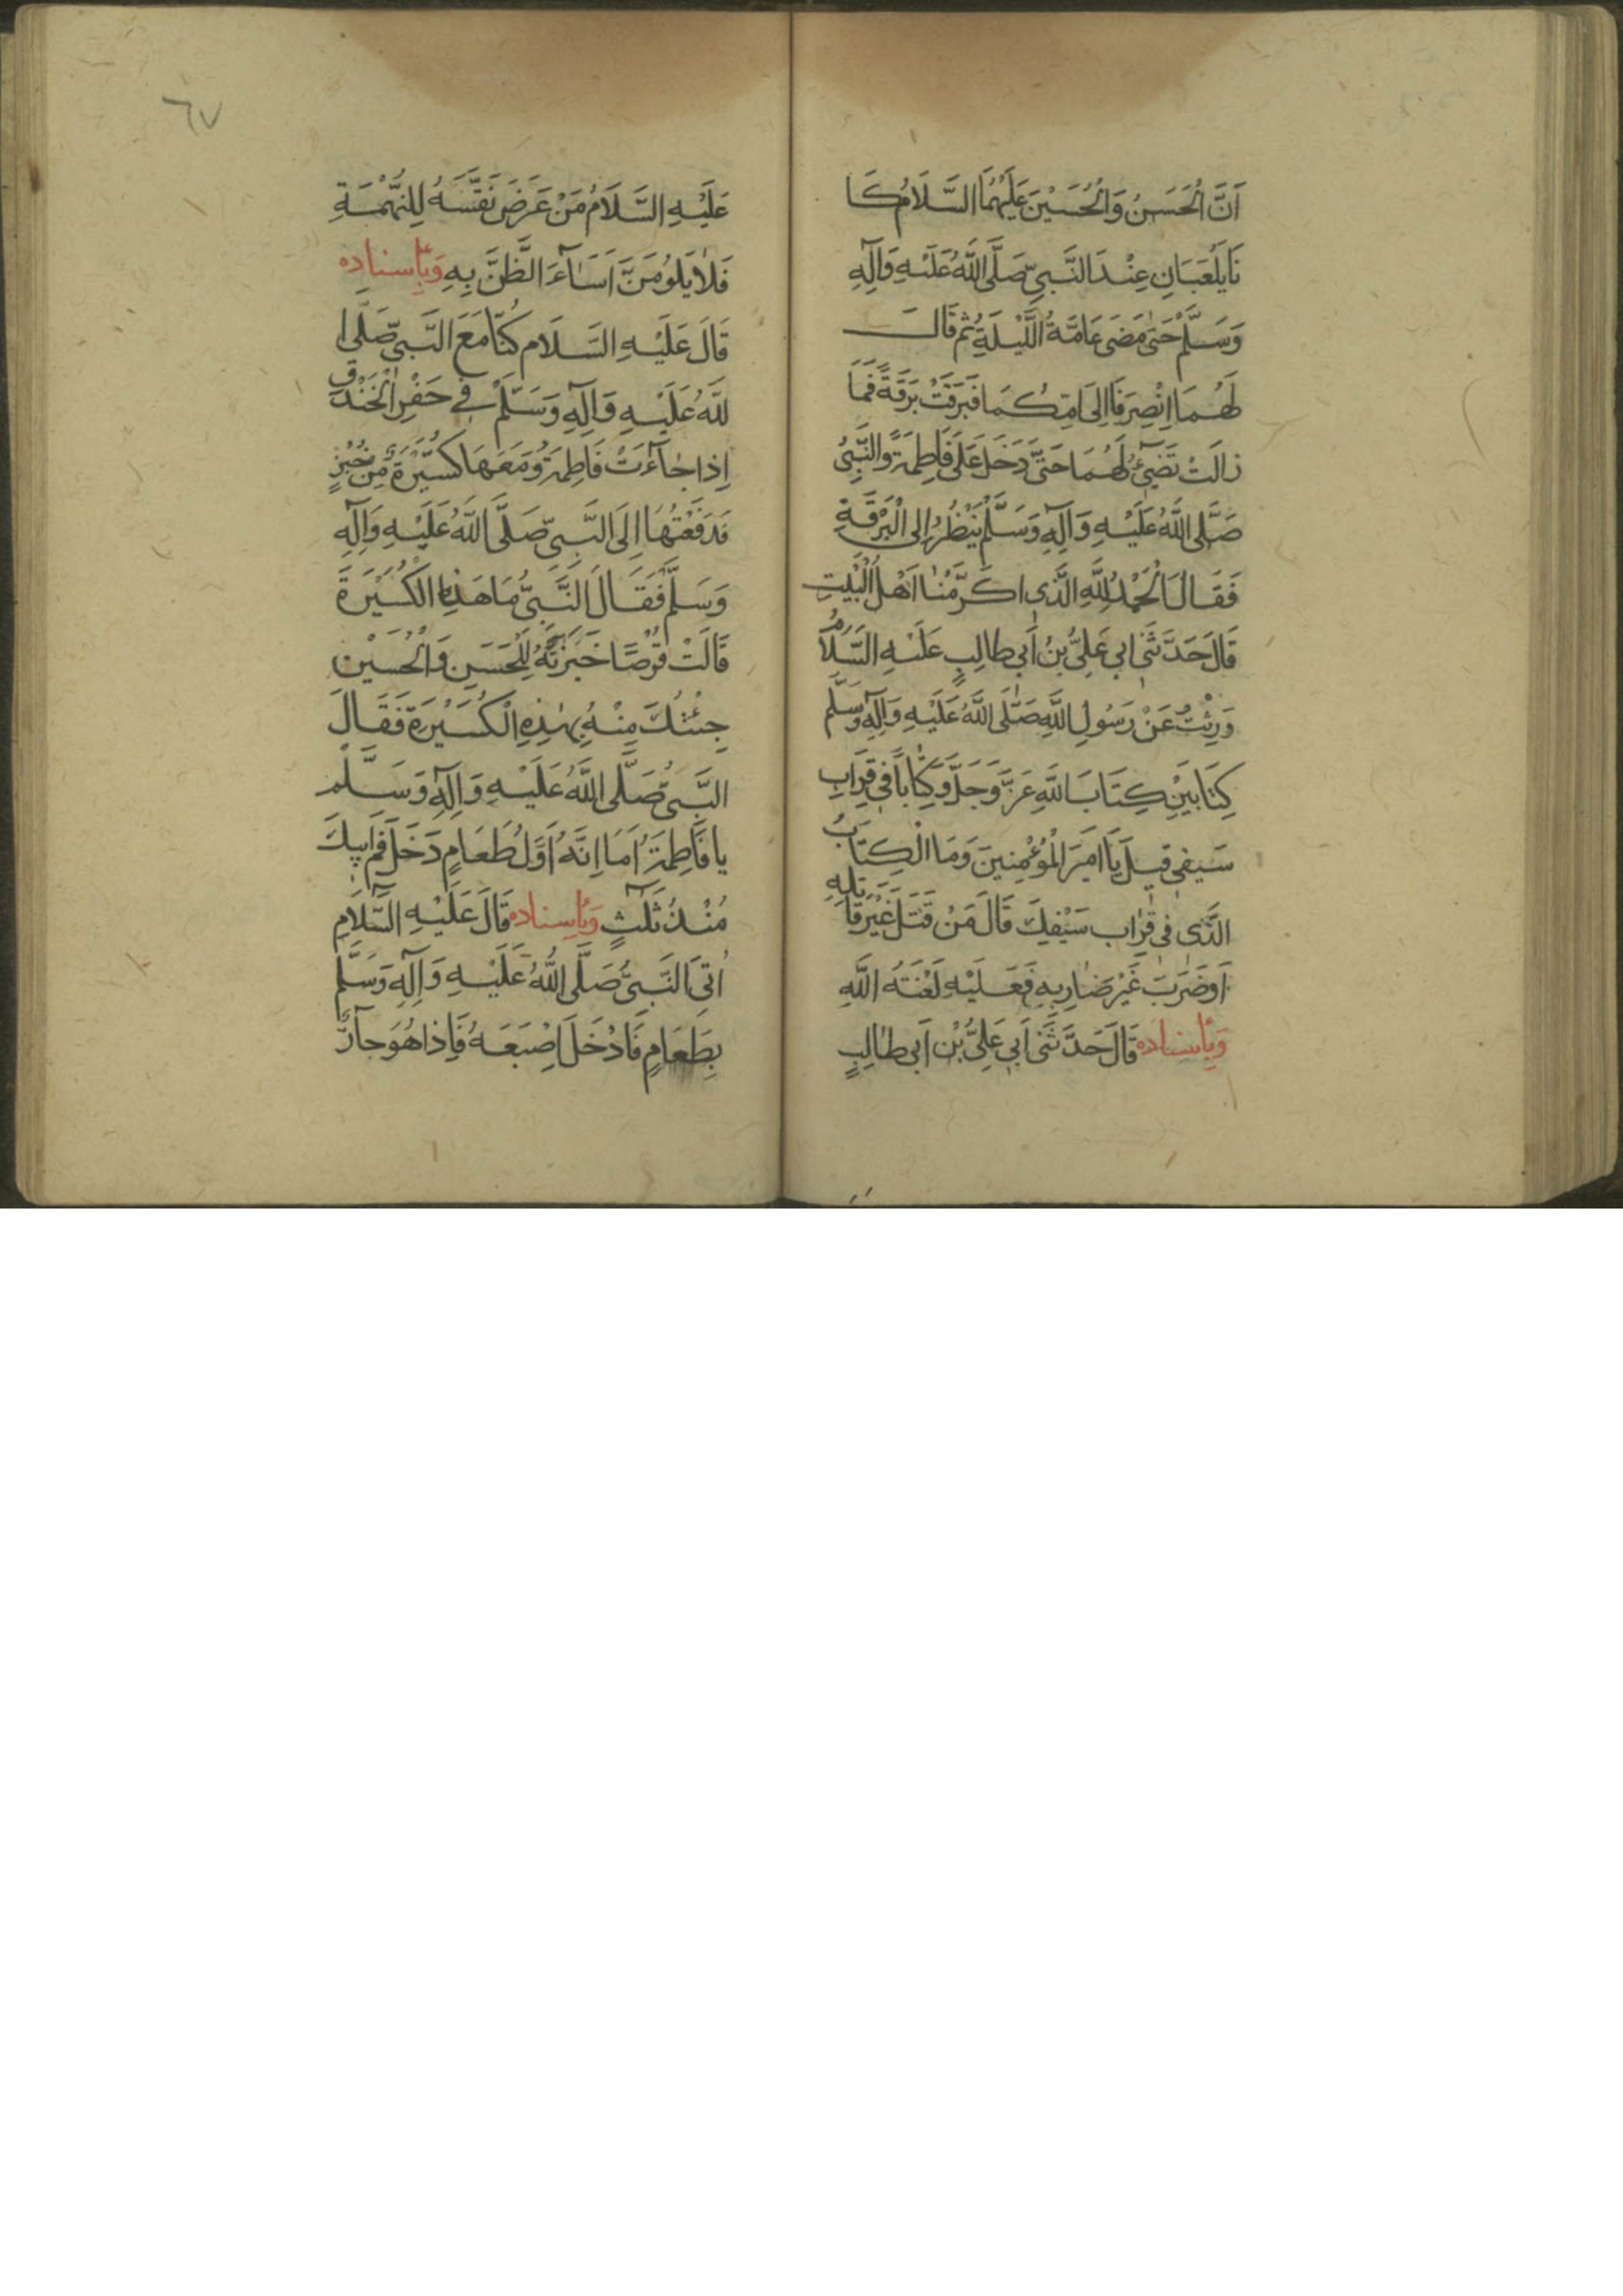 اَنَّ الْحَسَنَ وَالْحُسَيْنَ عَلَيْهِمَا السَّلَامُ كَا
نَا يَلْعَبَانِ عِنْدَ النَّبِيِّ صَلَّى اللَّهُ عَلَيْهِ وَآلِهِ
وَسَلَّمْ حَتىٰ مَضىٰ عَامَّةُ اللَّيْلَةِ ثُمَّ قَالَ
لَهُمَا اِنْصِرَفَا اِلىٰ اُمِّكُمَا فَبَرَقَتْ بَرْقَةً فَمَا
زالَتْ تَضِيۤئُ لَهُمَا حَتىّٰ دَخَلَ عَلىٰ فَاطِمَةَ وَالنَّبِيُّ
صَلَّى اللَّهُ عَلَيْهِ وَآلِهِ وَسَلَّمْ يَنْظُرُ اِلىَ الْبَرْقَةِ
فَقَالَ الْحَمْدُ لِلَّهِ الَّذِي اكَرَّمْنٰا اَهْلَ الْبَيْتِ
قَالَ حَدَّثَنىٰ اَبي عَلِيُّ بْنُ اَبي طالِبٍ عَلَيْهِ السَّلَامُ
وَرِثْتُ عَنْ رَسُولِ اللَّهِ صَلَّى اللَّهُ عَلَيْهِ وَآلِهِ وَسَلَّمْ
كِتَابَيْنِ كِتَابَ اللَّهِ عَزَّ وَجَلَّ وَكِتَاباً فىٖ قِرَابِ
سَيْفىٖ قيٖلَ يَا اَميٖرَ الْمُؤْمِنيٖنَ وَمَا الْكِتَابُ
الَّذىٖ فىٖ قِرٰابِ سَيْفِكَ قَالَ مَنْ قَتَلَ غَيْرَ قَاتِلِهِ
اَوْ ضَرَبَ غَيْرَ ضٰارِبِهِ فَعَلَيْهِ لَعْنَتَهُ اللَّهِ
وَبِأِسنادِه قَالَ حَدَّثَنىٰ اَبي عَلِيُّ بْنِ اَبي طالِبٍ
٦٧
عَلَيْهِ السَّلَامُ مَنْ عَرَضَ نَفْسَهُ لِلتُّهْمَةِ
فَلٰا يَلُومَنَّ اَسَآءَ الظَّنَّ بِهِ وَبِأِسنادِه
قَالَ عَلَيْهِ السَّلَام كُنَّا مَعَ النَّبِيِّ صَلَّى ا
للَّهُ عَلَيْهِ وَآلِهِ وَسَلَّمْ فىٖ حَفْرِ الْخَنْدَقِ
اِذا جٰاءَتْ فَاطِمَةُ وَمَعَهَا كُسَيْرَةٌ مِنْ خُبْزٍ
فَدَفَعْتُهَا اِلىَ النَّبِيِّ صَلَّى اللَّهُ عَلَيْهِ وَآلِهِ
وَسَلَّمْ فَقَالَ النَّبِيُّ مَا هٰذِهِ الْكُسَيْرَةَ
قَالَتْ قُرْصًا خَبَزْتُهُ لِلْحَسَنِ وَالْحُسَيْنِ
جِئْتُكَ مِنْهُ بِهٰذِهِ الْكُسَيْرَةِ فَقَالَ
النَّبِيُّ صَلَّى اللَّهُ عَلَيْهِ وَآلِهِ وَسَلَّمْ
يا فَاطِمَةُ اَمَا اِنَّهُ اَوَّلُ طَعَامٍ دَخَلَ فَمَ اَبيٖكَ
مُنْذُ ثَلٰثٍ وَبِأِسنادِه قَالَ عَلَيْهِ السَّلَامِ
اُتىَ النَّبِيُّ صَلَّى اللَّهُ عَلَيْهِ وَآلِهِ وَسَلَّمْ
بِطَعَامٍ فَادْخَلَ اِصْبَعَهُ فَاِذا هُوَ حآرٌّ